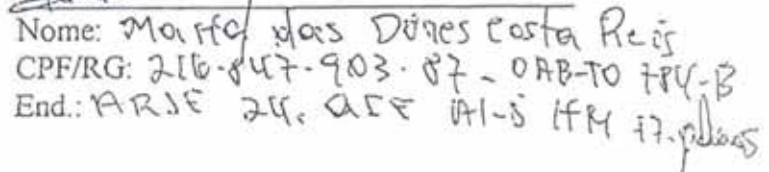 Nome: Maria das Dores Costa Reis
CPF/RG: 216.847.903.87 - OAB-TO 784-B
End.: ARSE 24.